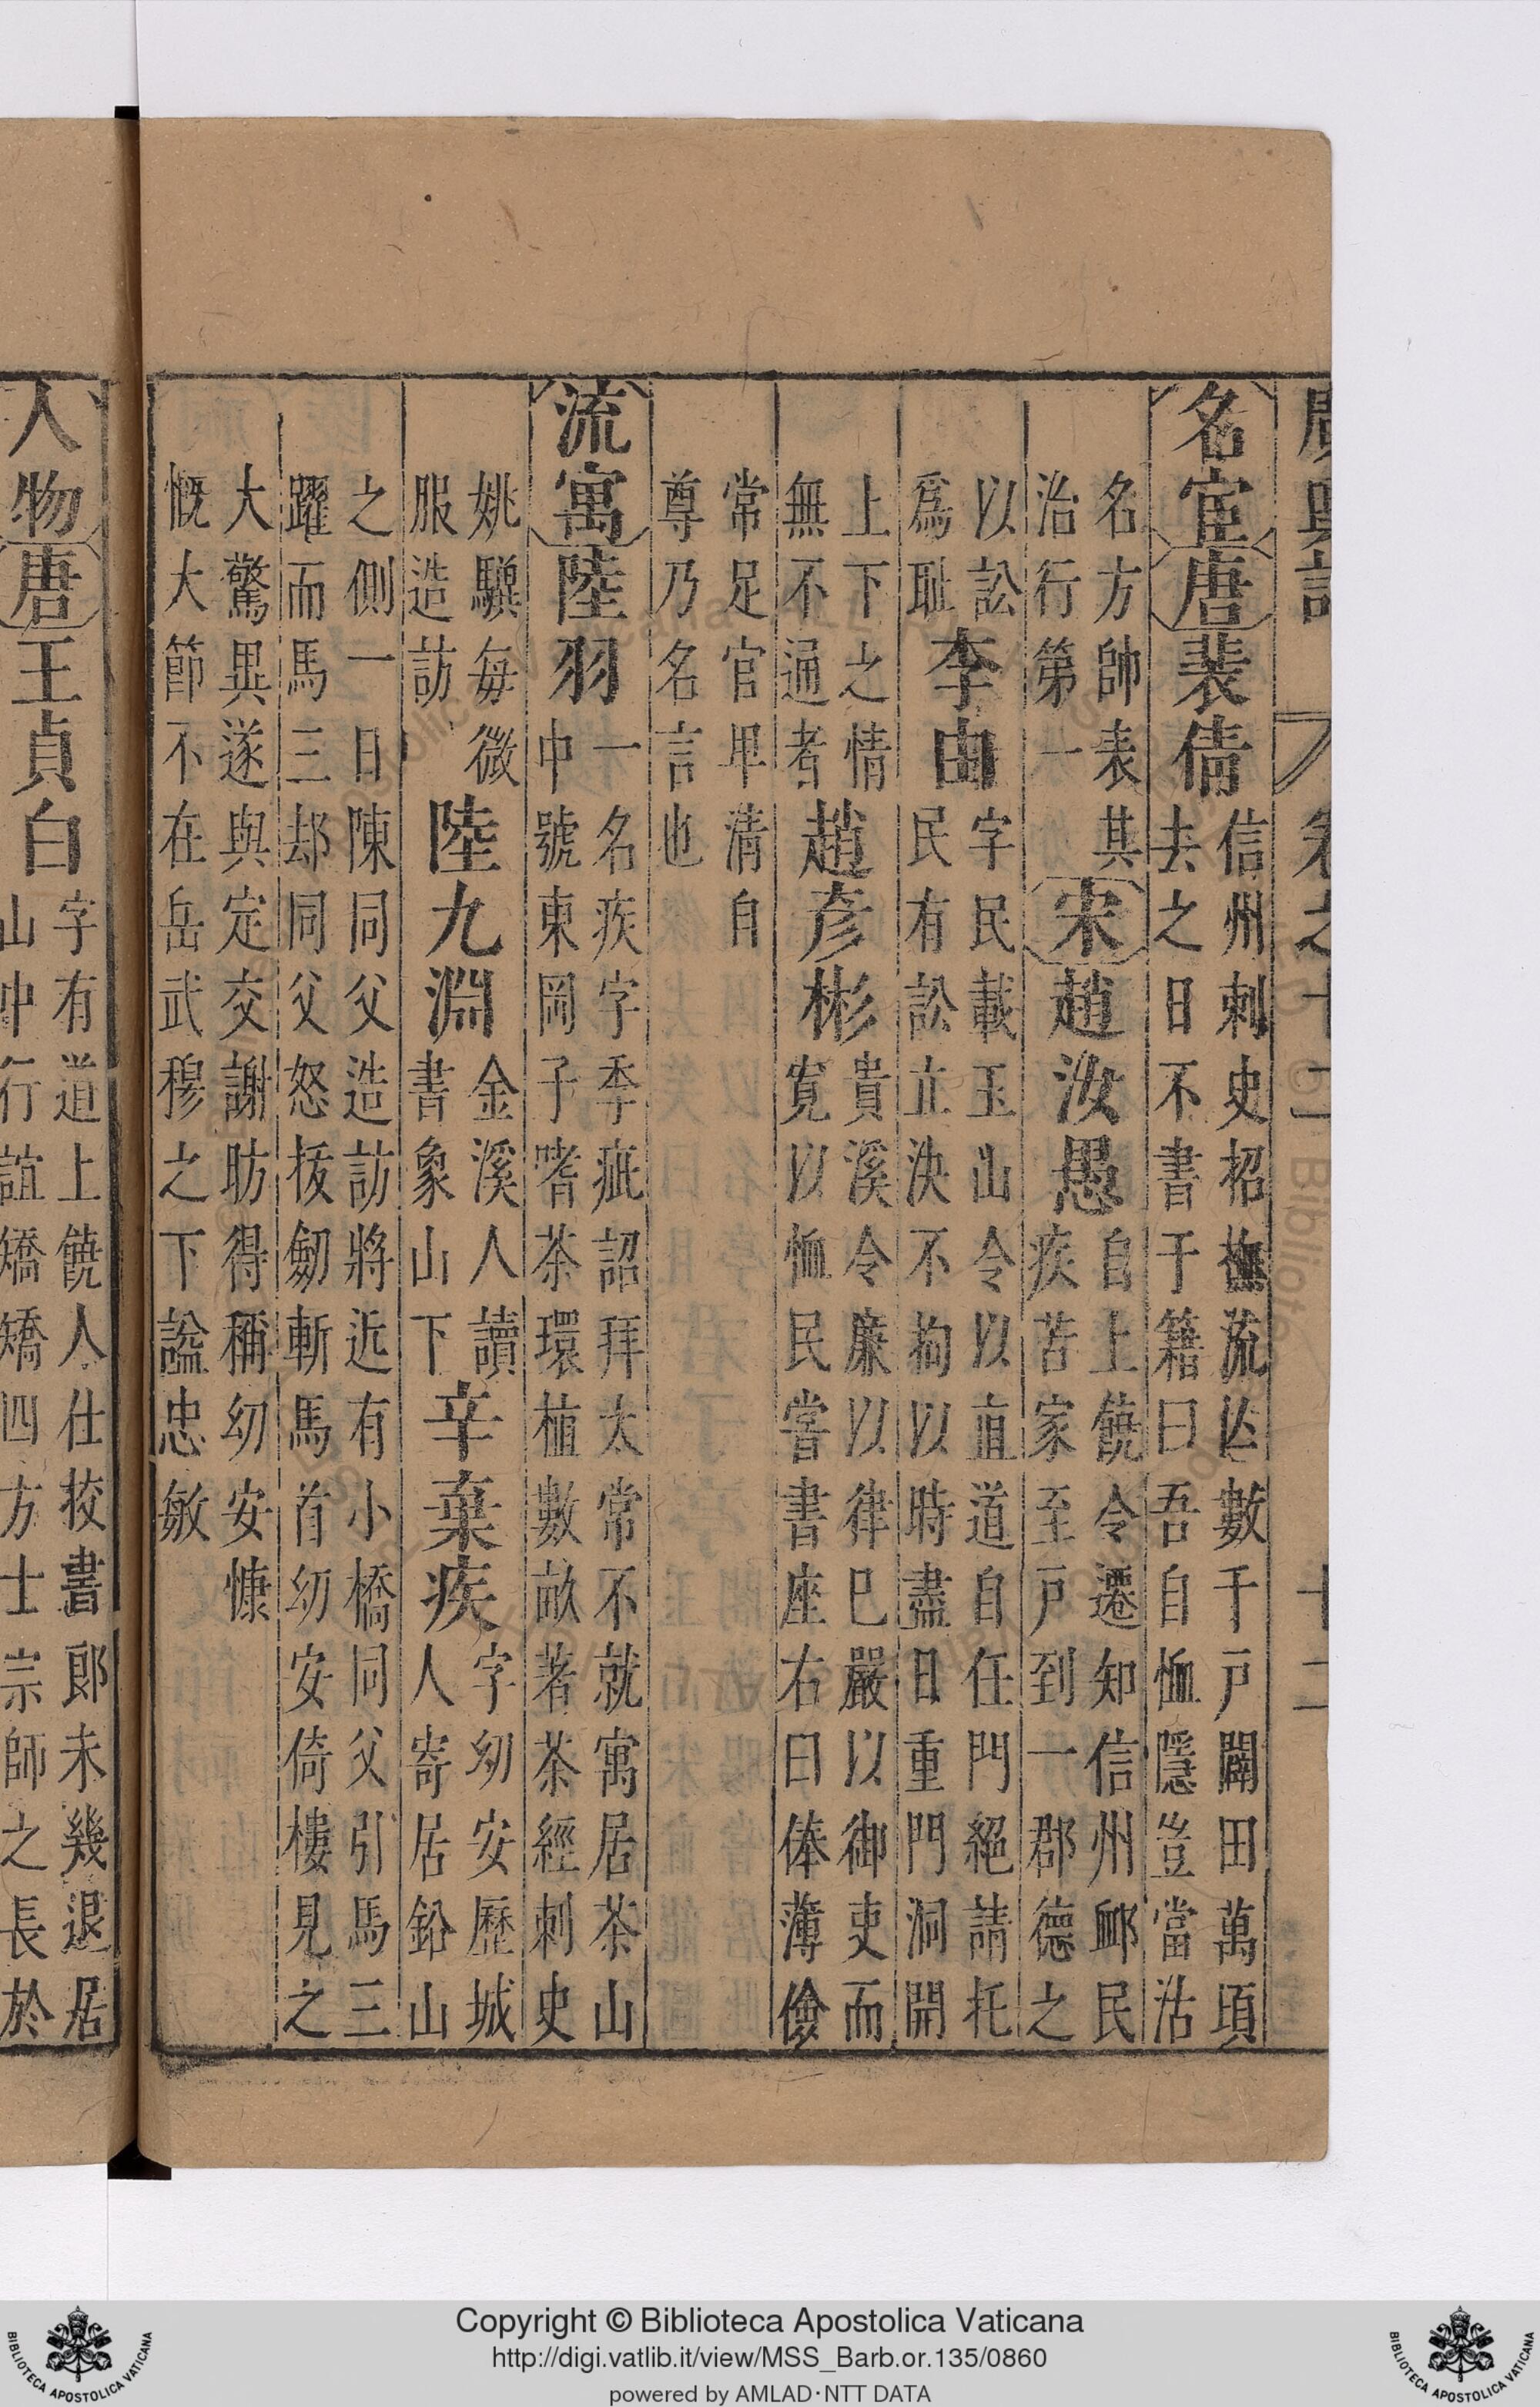 廣輿記 卷之十二 十二
名宦 唐 裴倩 信州刺史招撫流亾數千戸闢田萬頃
去之日不書于籍曰吾自恤隱豈當沽
名方帥表其
治行第一
宋 趙汝愚 自上饒令遷知信州䘏民
疾苦家至戸到一郡德之
以訟
爲耻
李由 字民載玉山令以直道自任門絕請托
民有訟立決不拘以時盡日重門洞開
上下之情
無不通者
趙彥彬 貴溪令廉以律巳嚴以御吏而
寬以恤民嘗書座右曰俸薄儉
常足官卑清自
尊乃名言也
流寓 陸羽 一名疾字季疵詔拜太常不就寓居茶山
中號東岡子嗜茶環植數畝著茶經刺史
姚驥每微
服造訪
陸九淵 金溪人讀
書象山下
辛棄疾 字㓜安歷城
人寄居鉛山
之側一日陳同父造訪將近有小橋同父引馬三
躍而馬三却同父怒拔劒斬馬首㓜安倚樓見之
大驚異遂與定交謝昉得稱㓜安慷
慨大節不在岳武穆之下謚忠敏
人物 唐 王貞白 字有道上饒人仕校書郎未幾退居
山中行誼矯矯四方士宗師之長於
Copyright © Biblioteca Apostolica Vaticana
http://digi.vatlib.it/view/MSS_Barb.or.135/0860
powered by AMLAD·NTT DATA
BIBLIOTECA APOSTOLICA VATICANA
BIBLIOTECA APOSTOLICA VATICANA